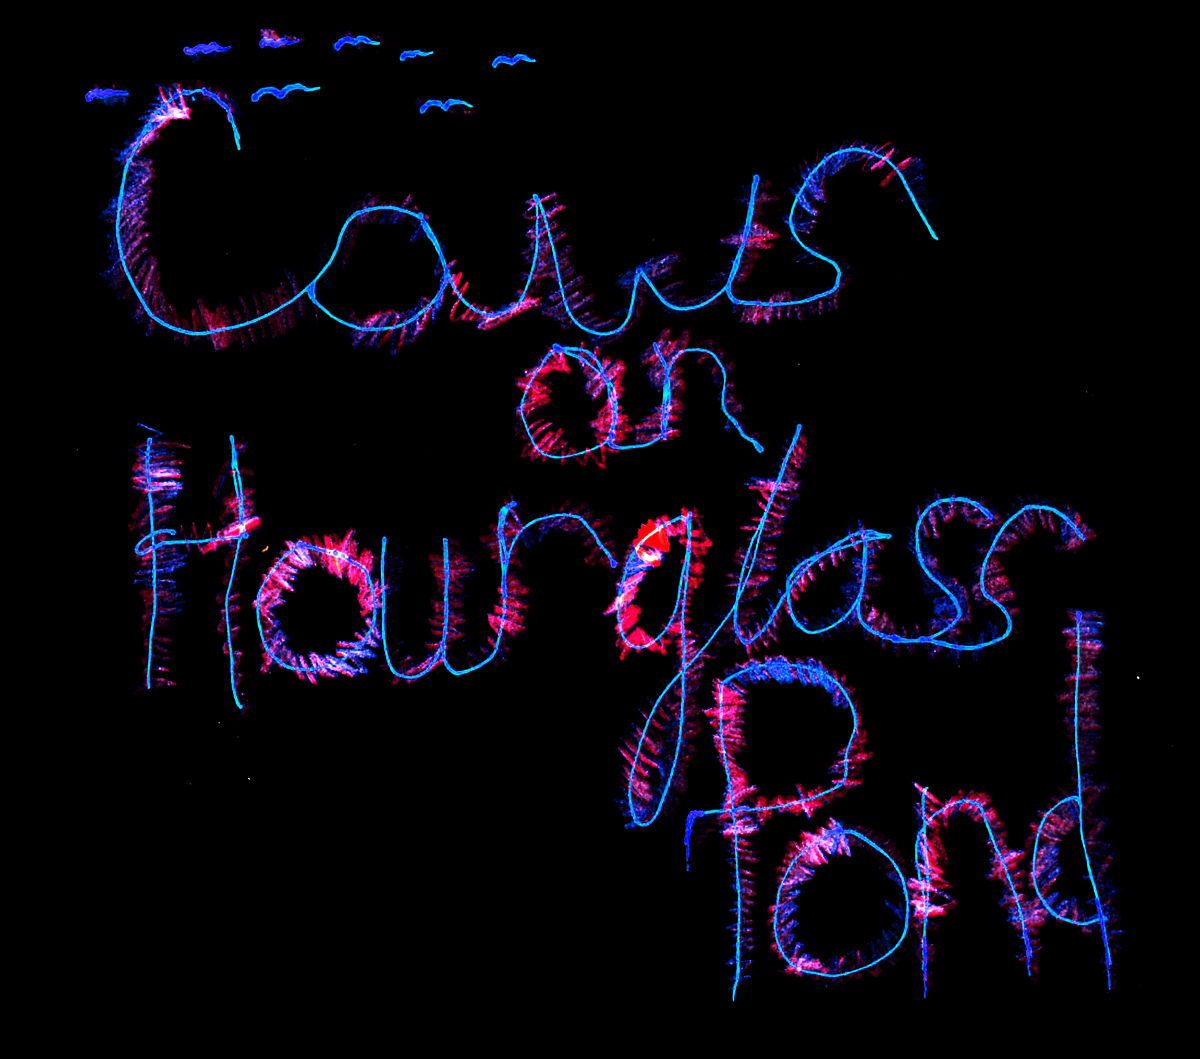 Cows
on
Hourglass
Pond